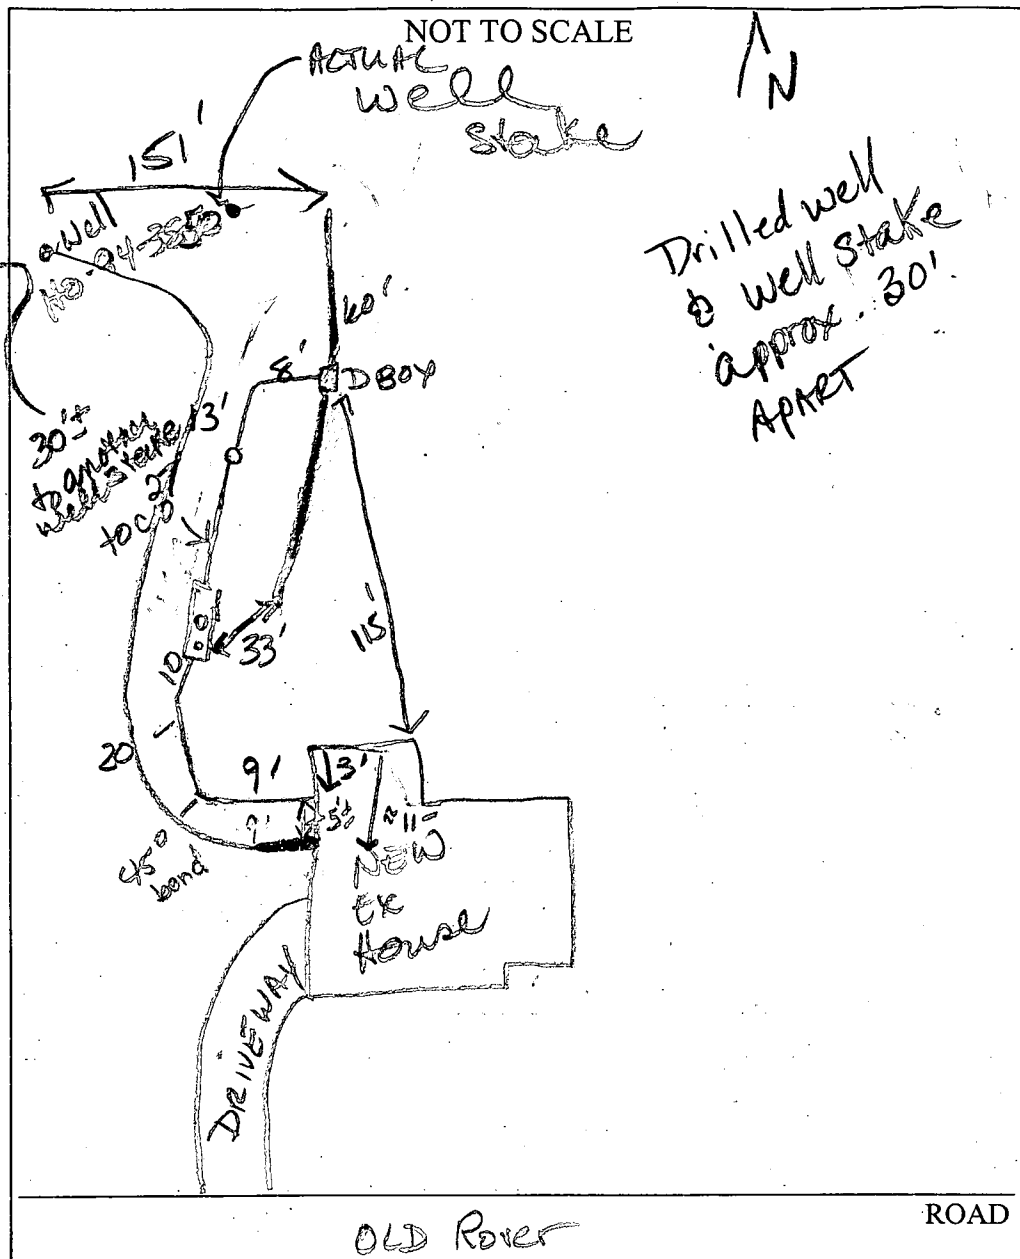 NOT TO SCALE
N
ACTUAL
Well
Stake
151'
Well
HO-94-3850
Drilled well
& well stake
approx. 30'
APART
60'
8'
D BOX
13'
30'±
to another
well stake
2
to CO
115'
33'
10
20
9'
3'
5'±
≈11-
9'
45°
bend
NEW
Ex
House
DRIVEWAY
ROAD
OLD Rover